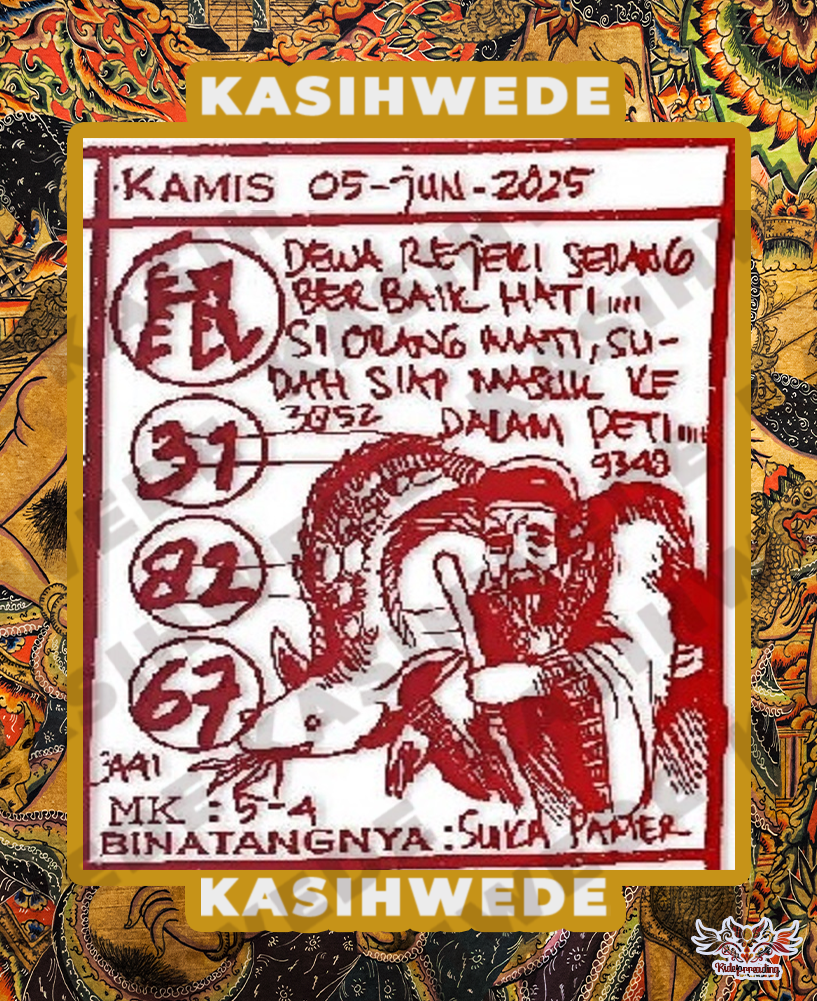 KASIHWEDE
KAMIS 05-JUN-2025
DEWA REJEKI SEDANG
BERBAIK HATI....
SI ORANG MATI, SU-
DAH SIAP MASUK KE
DALAM PETI....
3852
9348
31
82
67
MK : 5-4
BINATANGNYA : SUKA PAMER
KASIHWEDE